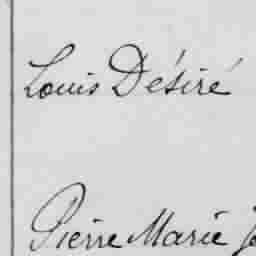 Louis Désiré
Pierre Marie